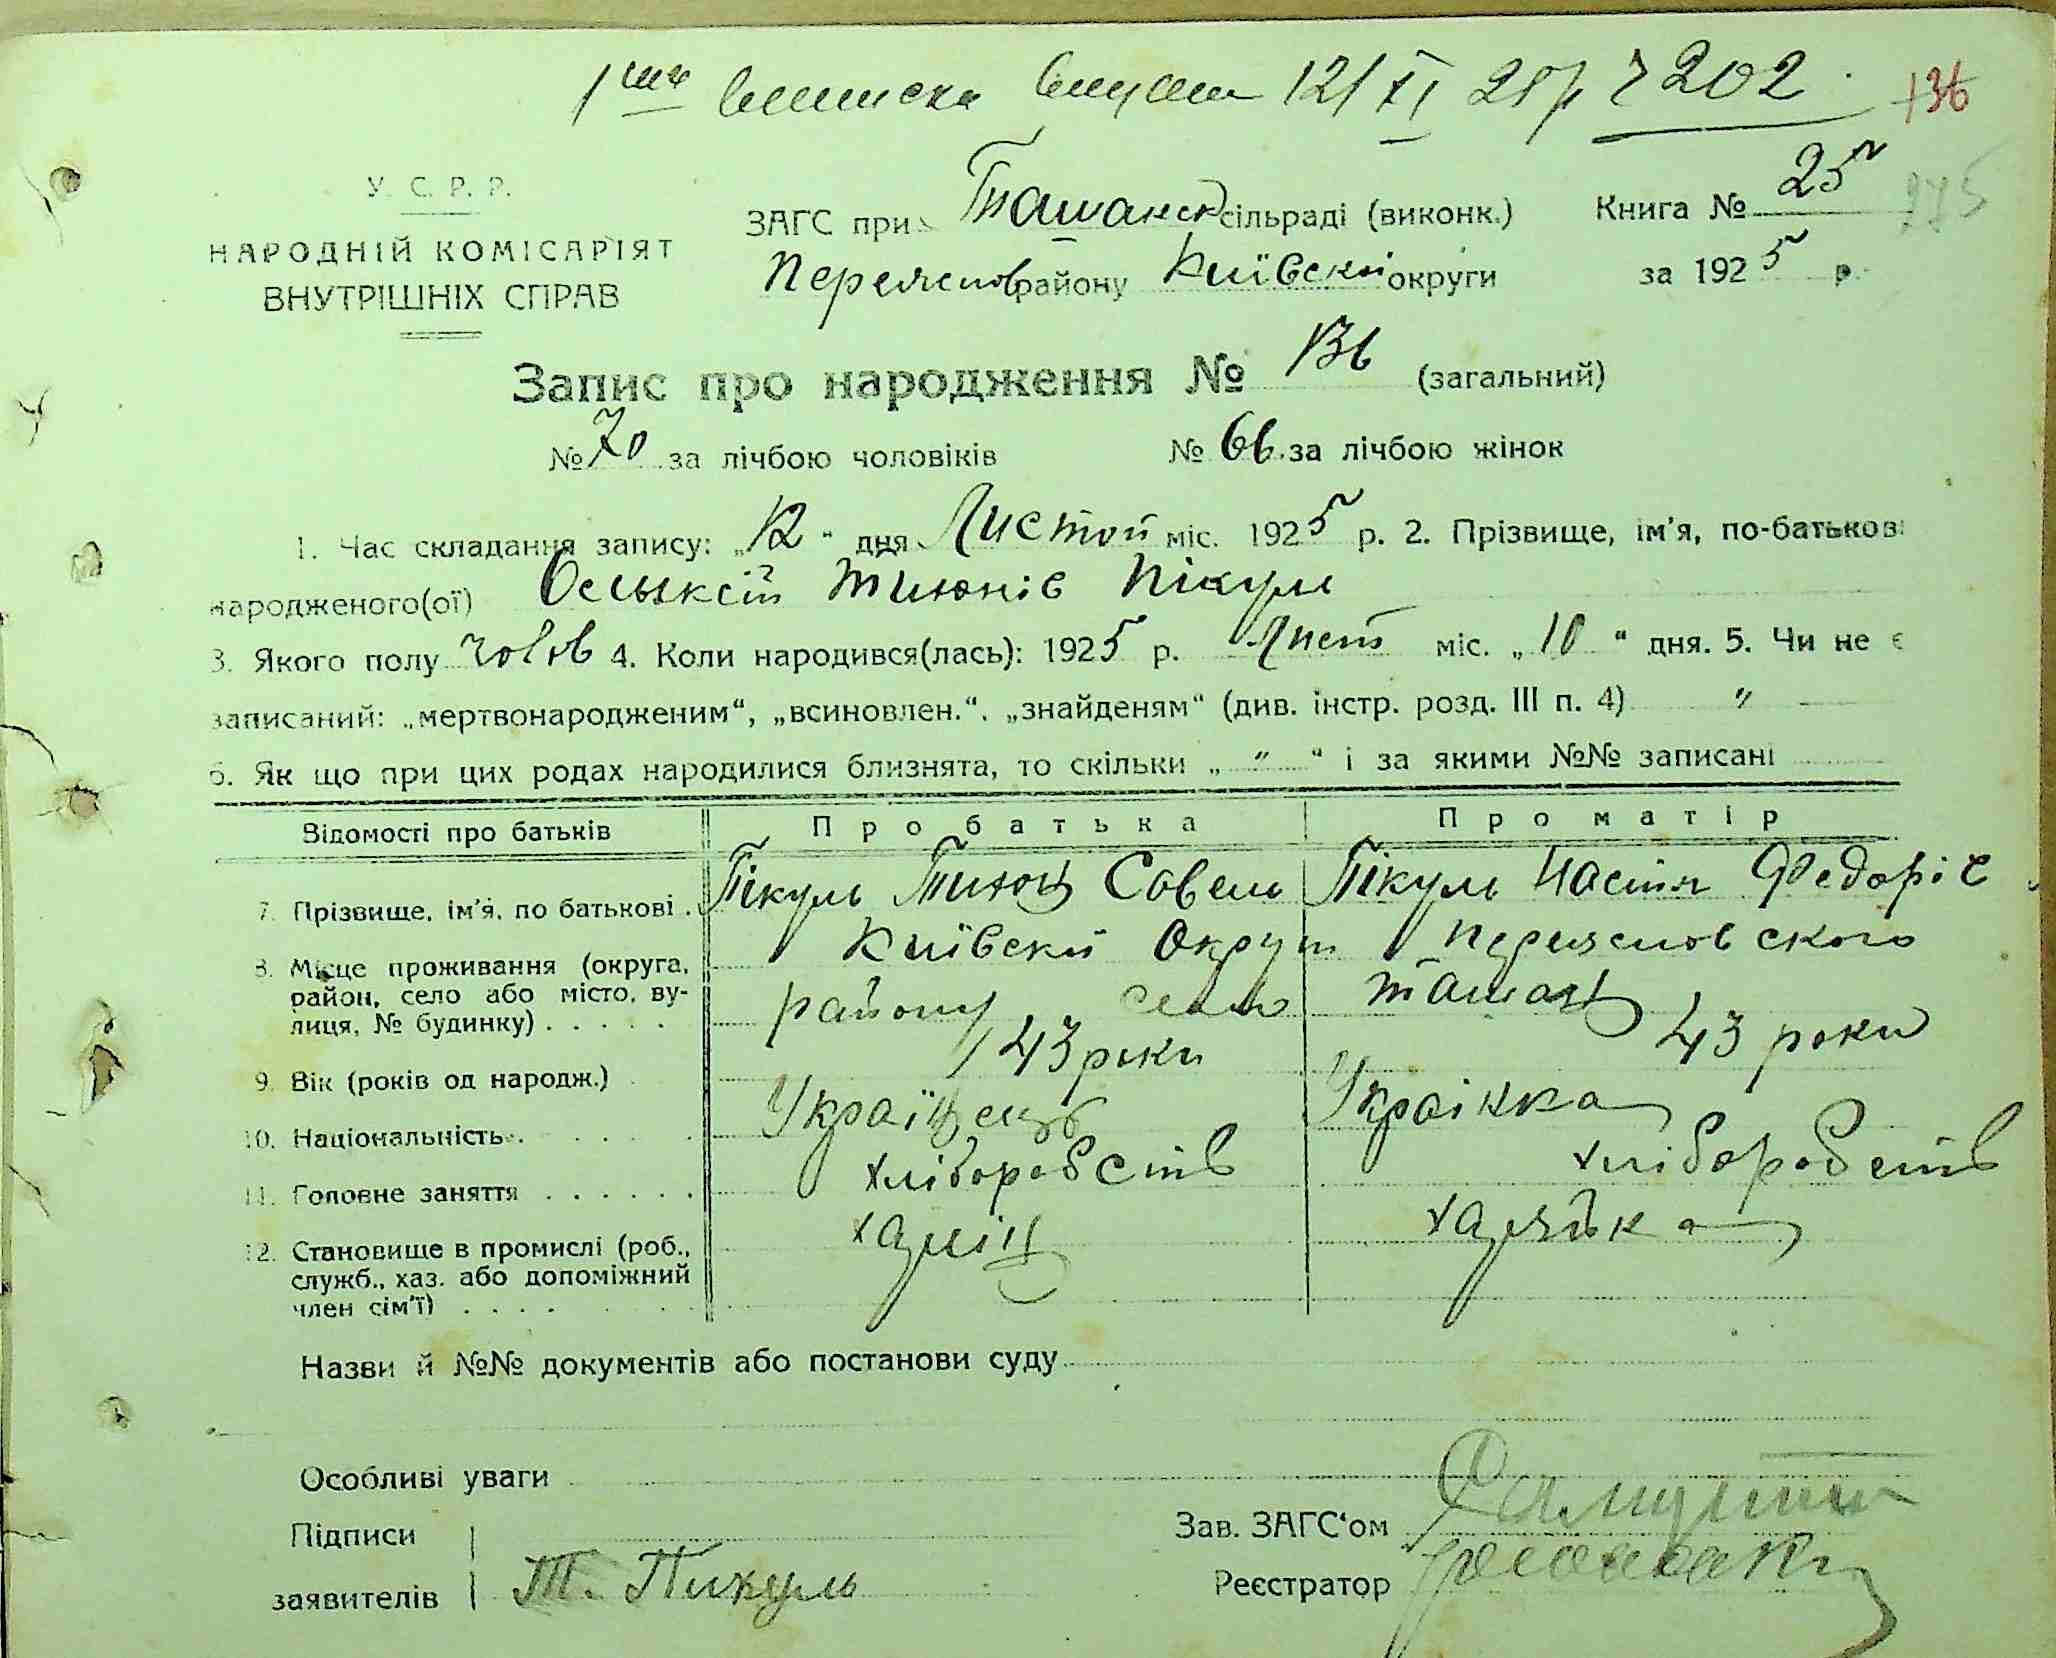 12/XI 25 р 202 136
У. С. Р. Р.
НАРОДНІЙ КОМІСАРІЯТ
ВНУТРІШНІХ СПРАВ
ЗАГС при Ташанск сільраді (виконк.) Книга № 25 275
Переяслов району Київскої округи за 1925 р.
Запис про народження № 136 (загальний)
№ 70 за лічбою чоловіків № 66 за лічбою жінок
1. Час складання запису: „12“ дня Листоп міс. 1925 р. 2. Прізвище, ім'я, по-батькові
народженого(ої) Пікуль
3. Якого полу чолов 4. Коли народився(лась): 1925 р. Лист міс. „10“ дня. 5. Чи не є
записаний: „мертвонародженим“, „всиновлен.“, „знайденям“ (див. інстр. розд. III п. 4) "
6. Як що при цих родах народилися близнята, то скільки „ " “ і за якими №№ записані
Відомості про батьків Про батька Про матір
7. Прізвище, ім'я, по батькові . Пікуль Тихон Савель Пікуль Настя Федорів
8. Місце проживання (округа, район, село або місто, вулиця, № будинку) . . . . . Київскй Округ Переясловского
району село Ташань
9. Вік (років од народж.) 43 роки 43 роки
10. Національність . . . . . Українець Українка
11. Головне заняття . . . . . . хліборобств хліборобств
12. Становище в промислі (роб., служб., хаз. або допоміжний член сім'ї) . . . . хазяїн хазяйка
Назви й №№ документів або постанови суду
Особливі уваги
Підписи Зав. ЗАГС‘ом
заявителів Т. Пикуль Реєстратор